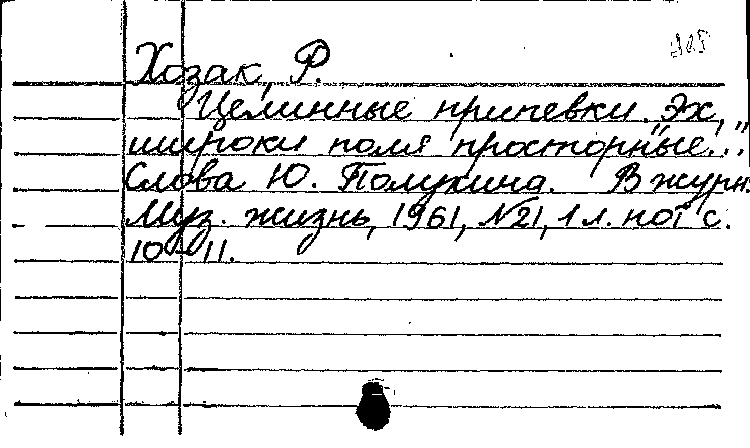 Хозак, Р.
Целинные припевки. "Эх,
широки поля просторные..."
Слова Ю. Полухина. В журн.
Муз. жизнь, 1961, №21, 1 л. нот с.
10-11.